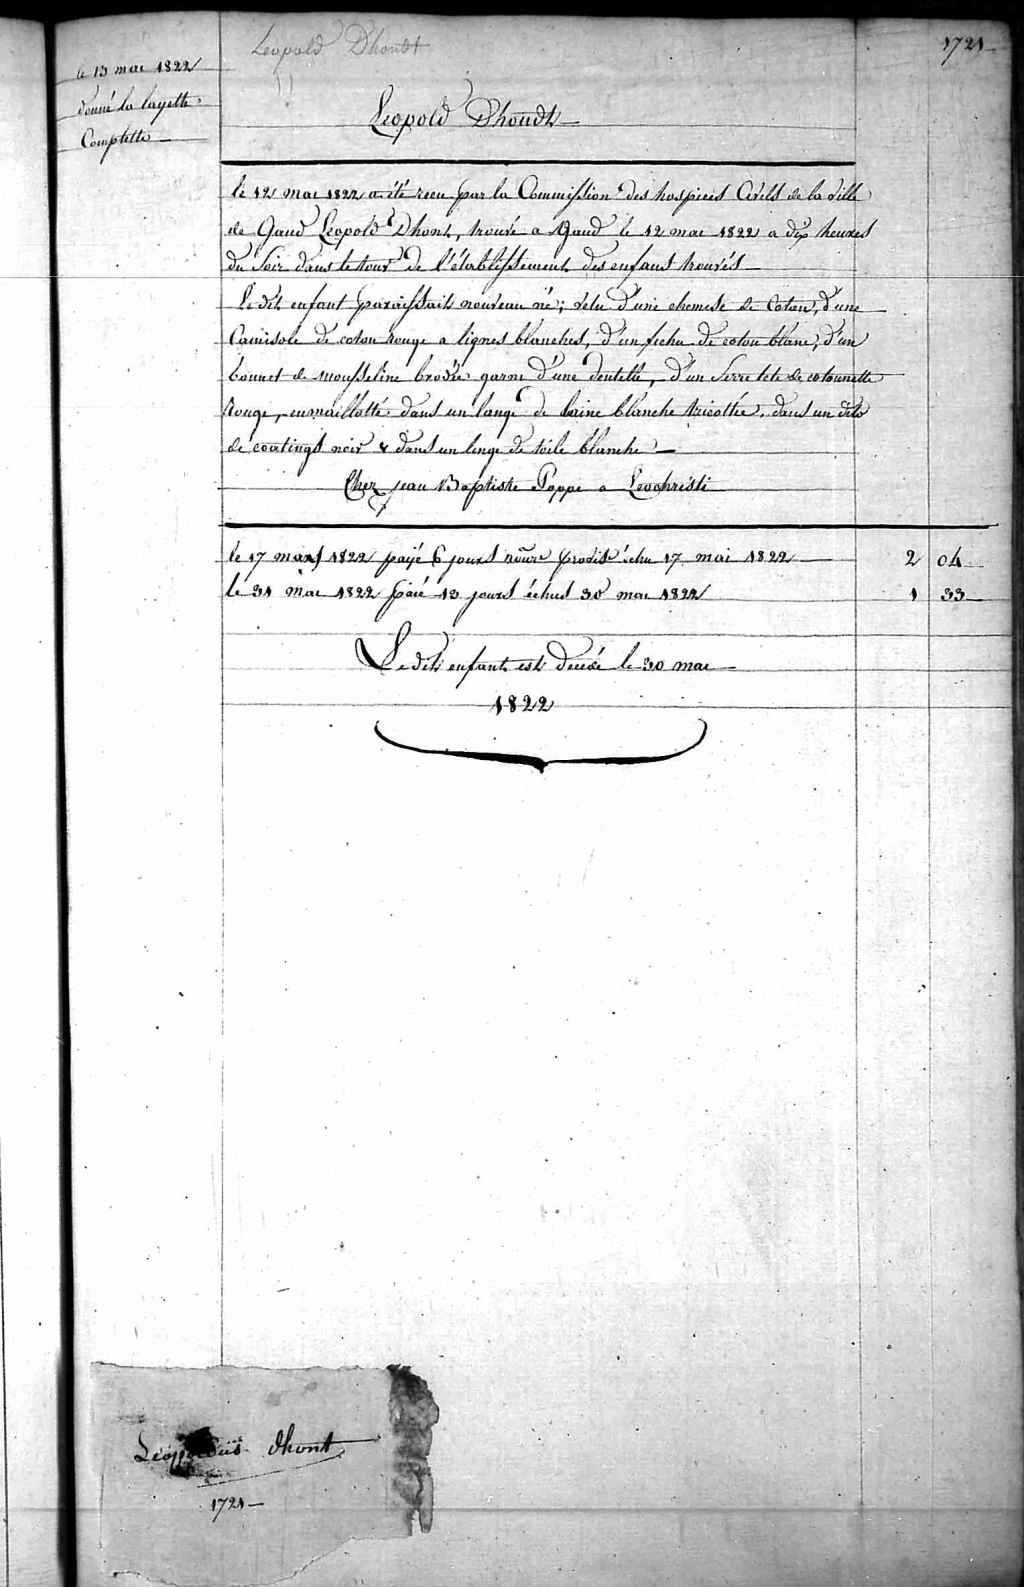 Leopold Dhondt
1721
le 13 mai 1822
donné la layette
Complette
Leopold Dhondt
le 12 mai 1822 a été recu par la Commission des hospices Civils de la ville
de Gand Leopold Dhont, trouvé a Gand le 12 mai 1822 a dix heures
du Soir dans le tour de l'établissement des enfans trouvés
le dit enfant paraissait nouveau né; vetu d'une chemise de Coton, d'une
Camisole de coton rouge a lignes blanches, d'un fichu de coton blanc, d'un
bonnet de mousseline brodée garni d'une dentelle, d'un Serre tete de cotonnette
Rouge, enmaillotté dans un lange de laine blanche tricottée, dans un dito
de coatings noir & dans un linge de toile blanche
Chez jean Baptiste Poppe a Loochristi
le 17 mai 1822 payé 6 jours échu 17 mai 1822 2 04
le 31 mai 1822 païé 13 jours échus 30 mai 1822 1 33
Le dit enfant est decédé le 30 mai
1822
dhont
1721